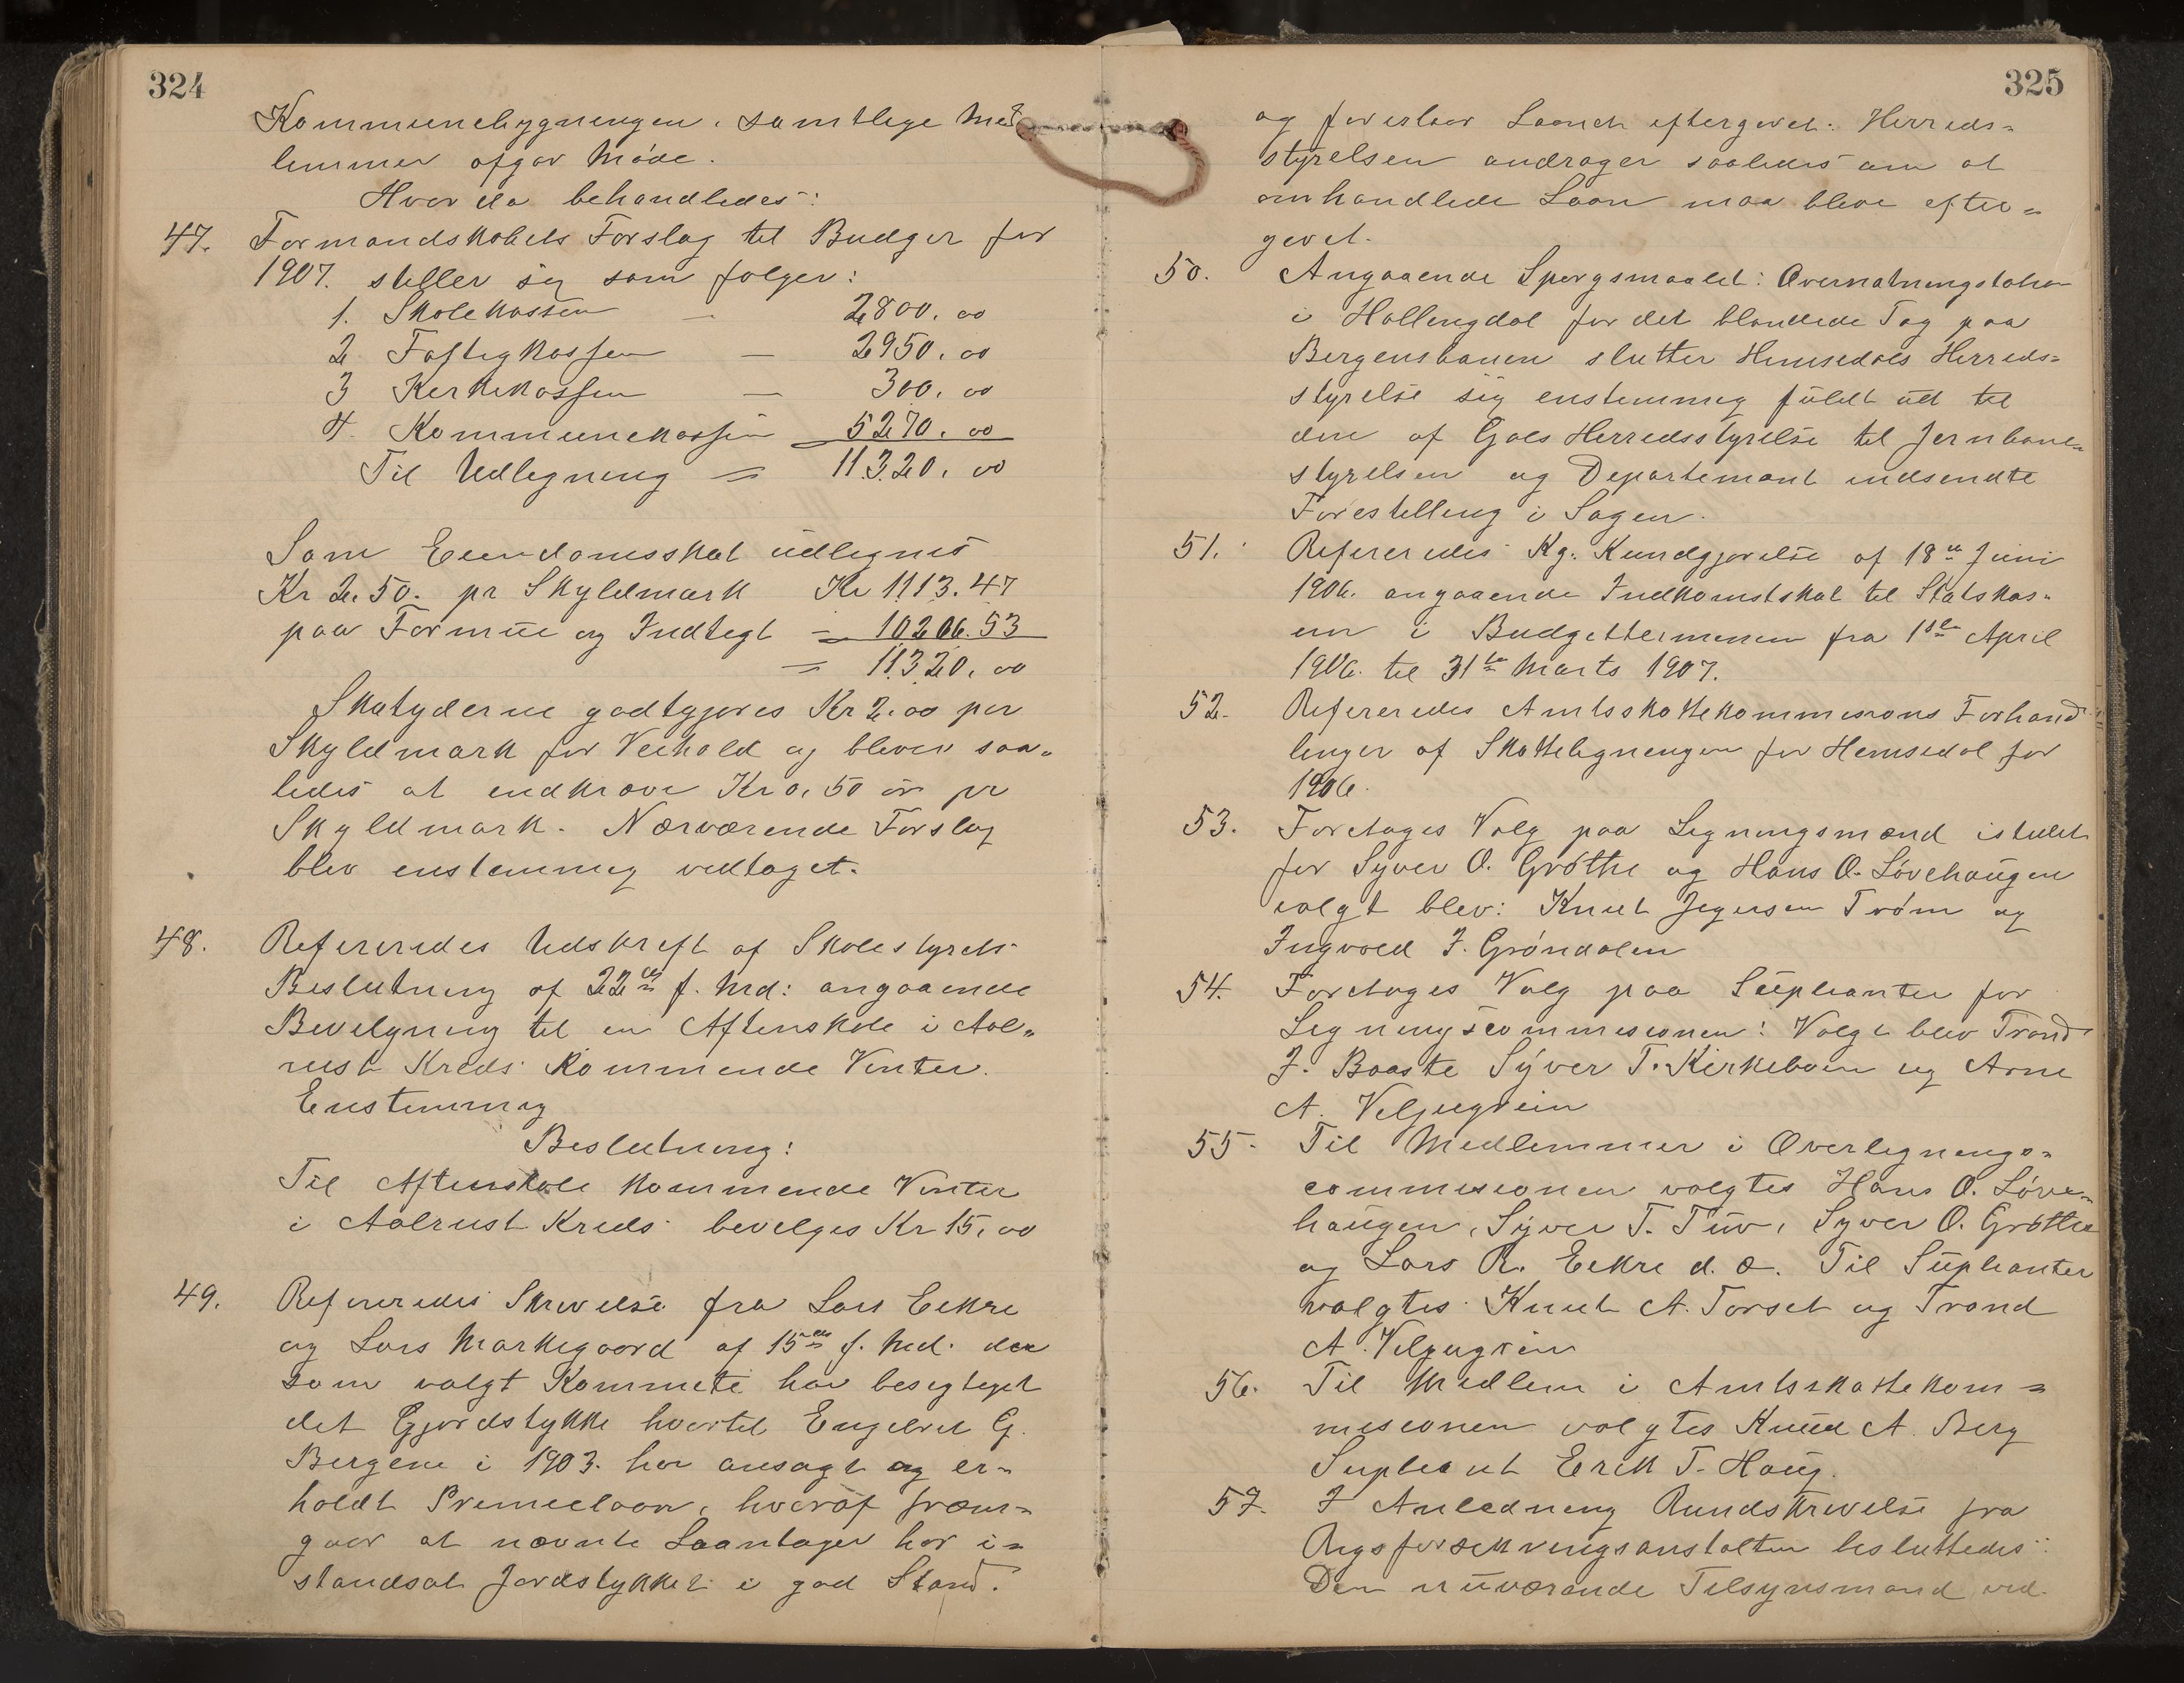 324
Kommunebygningen. Samtlige Med
lemmer afgav Møde.
Hvor da behandledes:
47. Formandskabets Forslag til Budget for
1907. stiller sig som følger:
1. Skolekassen — 2800.00
2 Fattigkassen — 2950.00
3 Kirkekassen — 300.00
4. Kommunekassen 5270.00
Til Udlegning = 11320.00
Som Eiendomsskat udlignes
Kr 2.50. pr Skyldmark Kr 1113.47
paa Formue og Indtegt - 10206.53
= 11320.00
Skatyderne godtgjøres Kr 2.00 per
Skyldmark for Veihold og bliver saa-
ledes at indkræve Kr 0,50 ør pr
Skyldmark. Nærværende Forslag
blev enstemmig vedtaget.
48. Refereredes Udskrift af Skolestyrets
Beslutning af 22de f. Md: angaaende
Bevilgning til en Aftenskole i Aal-
rust Kreds Kommende Vinter.
Enstemmig
Beslutning:
Til Aftenskole Kommende Vinter
i Aalrust Kreds bevilges Kr 15,00
49. Refereredes Skrivelse fra Lars Eekre
og Lars Markegaard af 15de f. Md. der
som valgt Kommite har besigtiget
det Gjordstykke hvortil Engebret G.
Bergene i 1903. har ansøgt og er-
holdt Premielaan, hvoraf frem-
gaar at nævnte Laantager har i-
standsat Jordstykket i god Stand.
325
og foreslaar Laanet eftergivet. Herreds-
styrelsen andrager saaledes om at
omhandlede Laan maa blive efter-
givet.
50. Angaaende Spørgsmaalet: Overnatningstation
i Hallingdal for det blandede Tog paa
Bergensbanen slutter Hemsedals Herreds-
styrelse sig enstemmig fuldt ud til
den af Goes Herredsstyrelse til Jernbane-
styrelsen og Departemant indsendte
Forestilling i Sagen.
51. Refereredes Kg. Kundgjørelse af 18de Juni
1906. angaaende Indkomstskat til Statskas-
en i Budgetterminen fra 1ste April
1906. til 31te Marts 1907.
52. Refereredes Amtsskattekommisions Forhand
linger af Skatteligningen for Hemsedal for
1906.
53. Foretages Valg paa Ligningsmænd istedet
for Syver O. Grøthe og Hans O. Løvehaugen
valgt blev: Knut Jegersen Trøm og
Ingvald J. Grøndalen
54. Foretages Valg paa Supleanter for
Ligningscommisionen: Valgt blev Trond
J. Baaste Syver T. Kirkebøen og Arne
A. Veljugrein
55. Til Medlemmer i Overlignings-
commisionen valgtes Hans O. Løve-
haugen, Syver T. Tuv, Syver O. Grøthe
og Lars R. Eekre d. æ. Til Supleanter
valgtes Knut A. Torset og Trond
A. Veljugrein
56. Til Medlem i Amtsskattekom-
misionen valgtes Knud A. Berg
Supleant Erik T. Haug.
57. I Anledning Rundskrivelse fra
Rigsforsekringsanstalten besluttedes:
Den nuværende Tilsynsmand ved